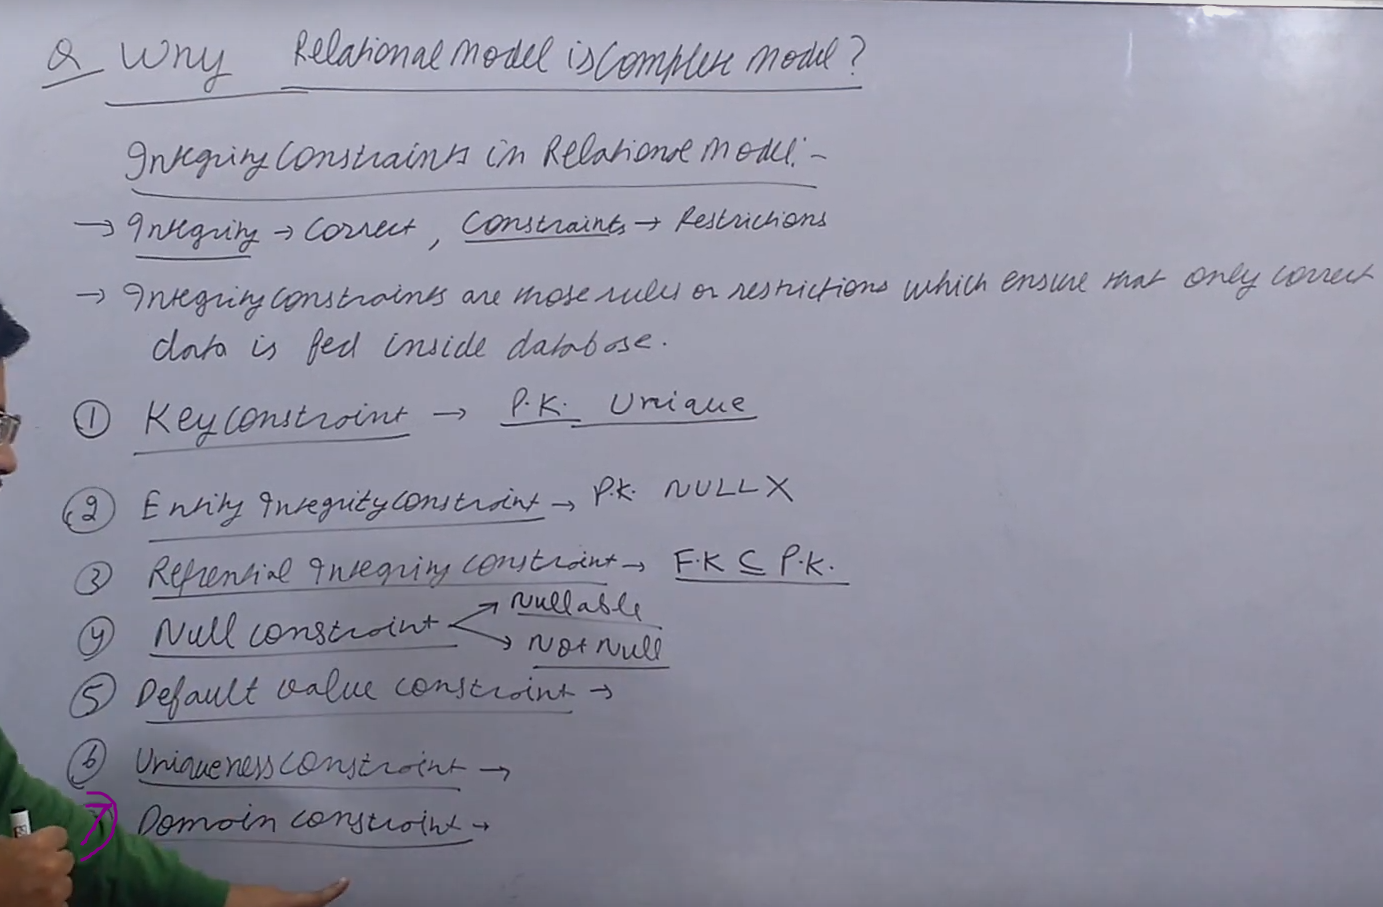 Q Why Relational Model is Complete Model?
Integrity Constraints in Relational Model:-
→ Integrity → Correct, Constraints → Restrictions
→ Integrity constraints are those rules or restrictions which ensure that only correct
data is fed inside database.
① Key constraint → P.K. Unique
② Entity Integrity constraint → P.K. NULL X
③ Refrential Integrity constraint → F.K ⊆ P.K.
④ Null constraint → Nullable
→ Not Null
⑤ Default value constraint →
⑥ Uniqueness constraint →
7) Domain constraint →